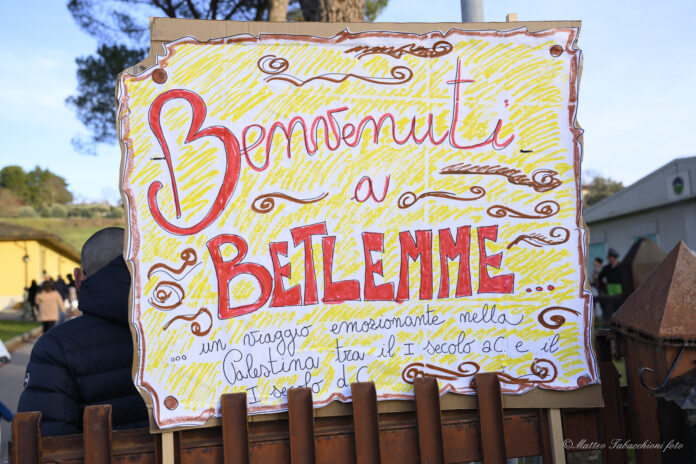 Benvenuti
a
BETLEMME...
... un viaggio emozionante nella
Palestina tra il I secolo aC e il
I secolo dC
© Matteo Tabacchioni foto